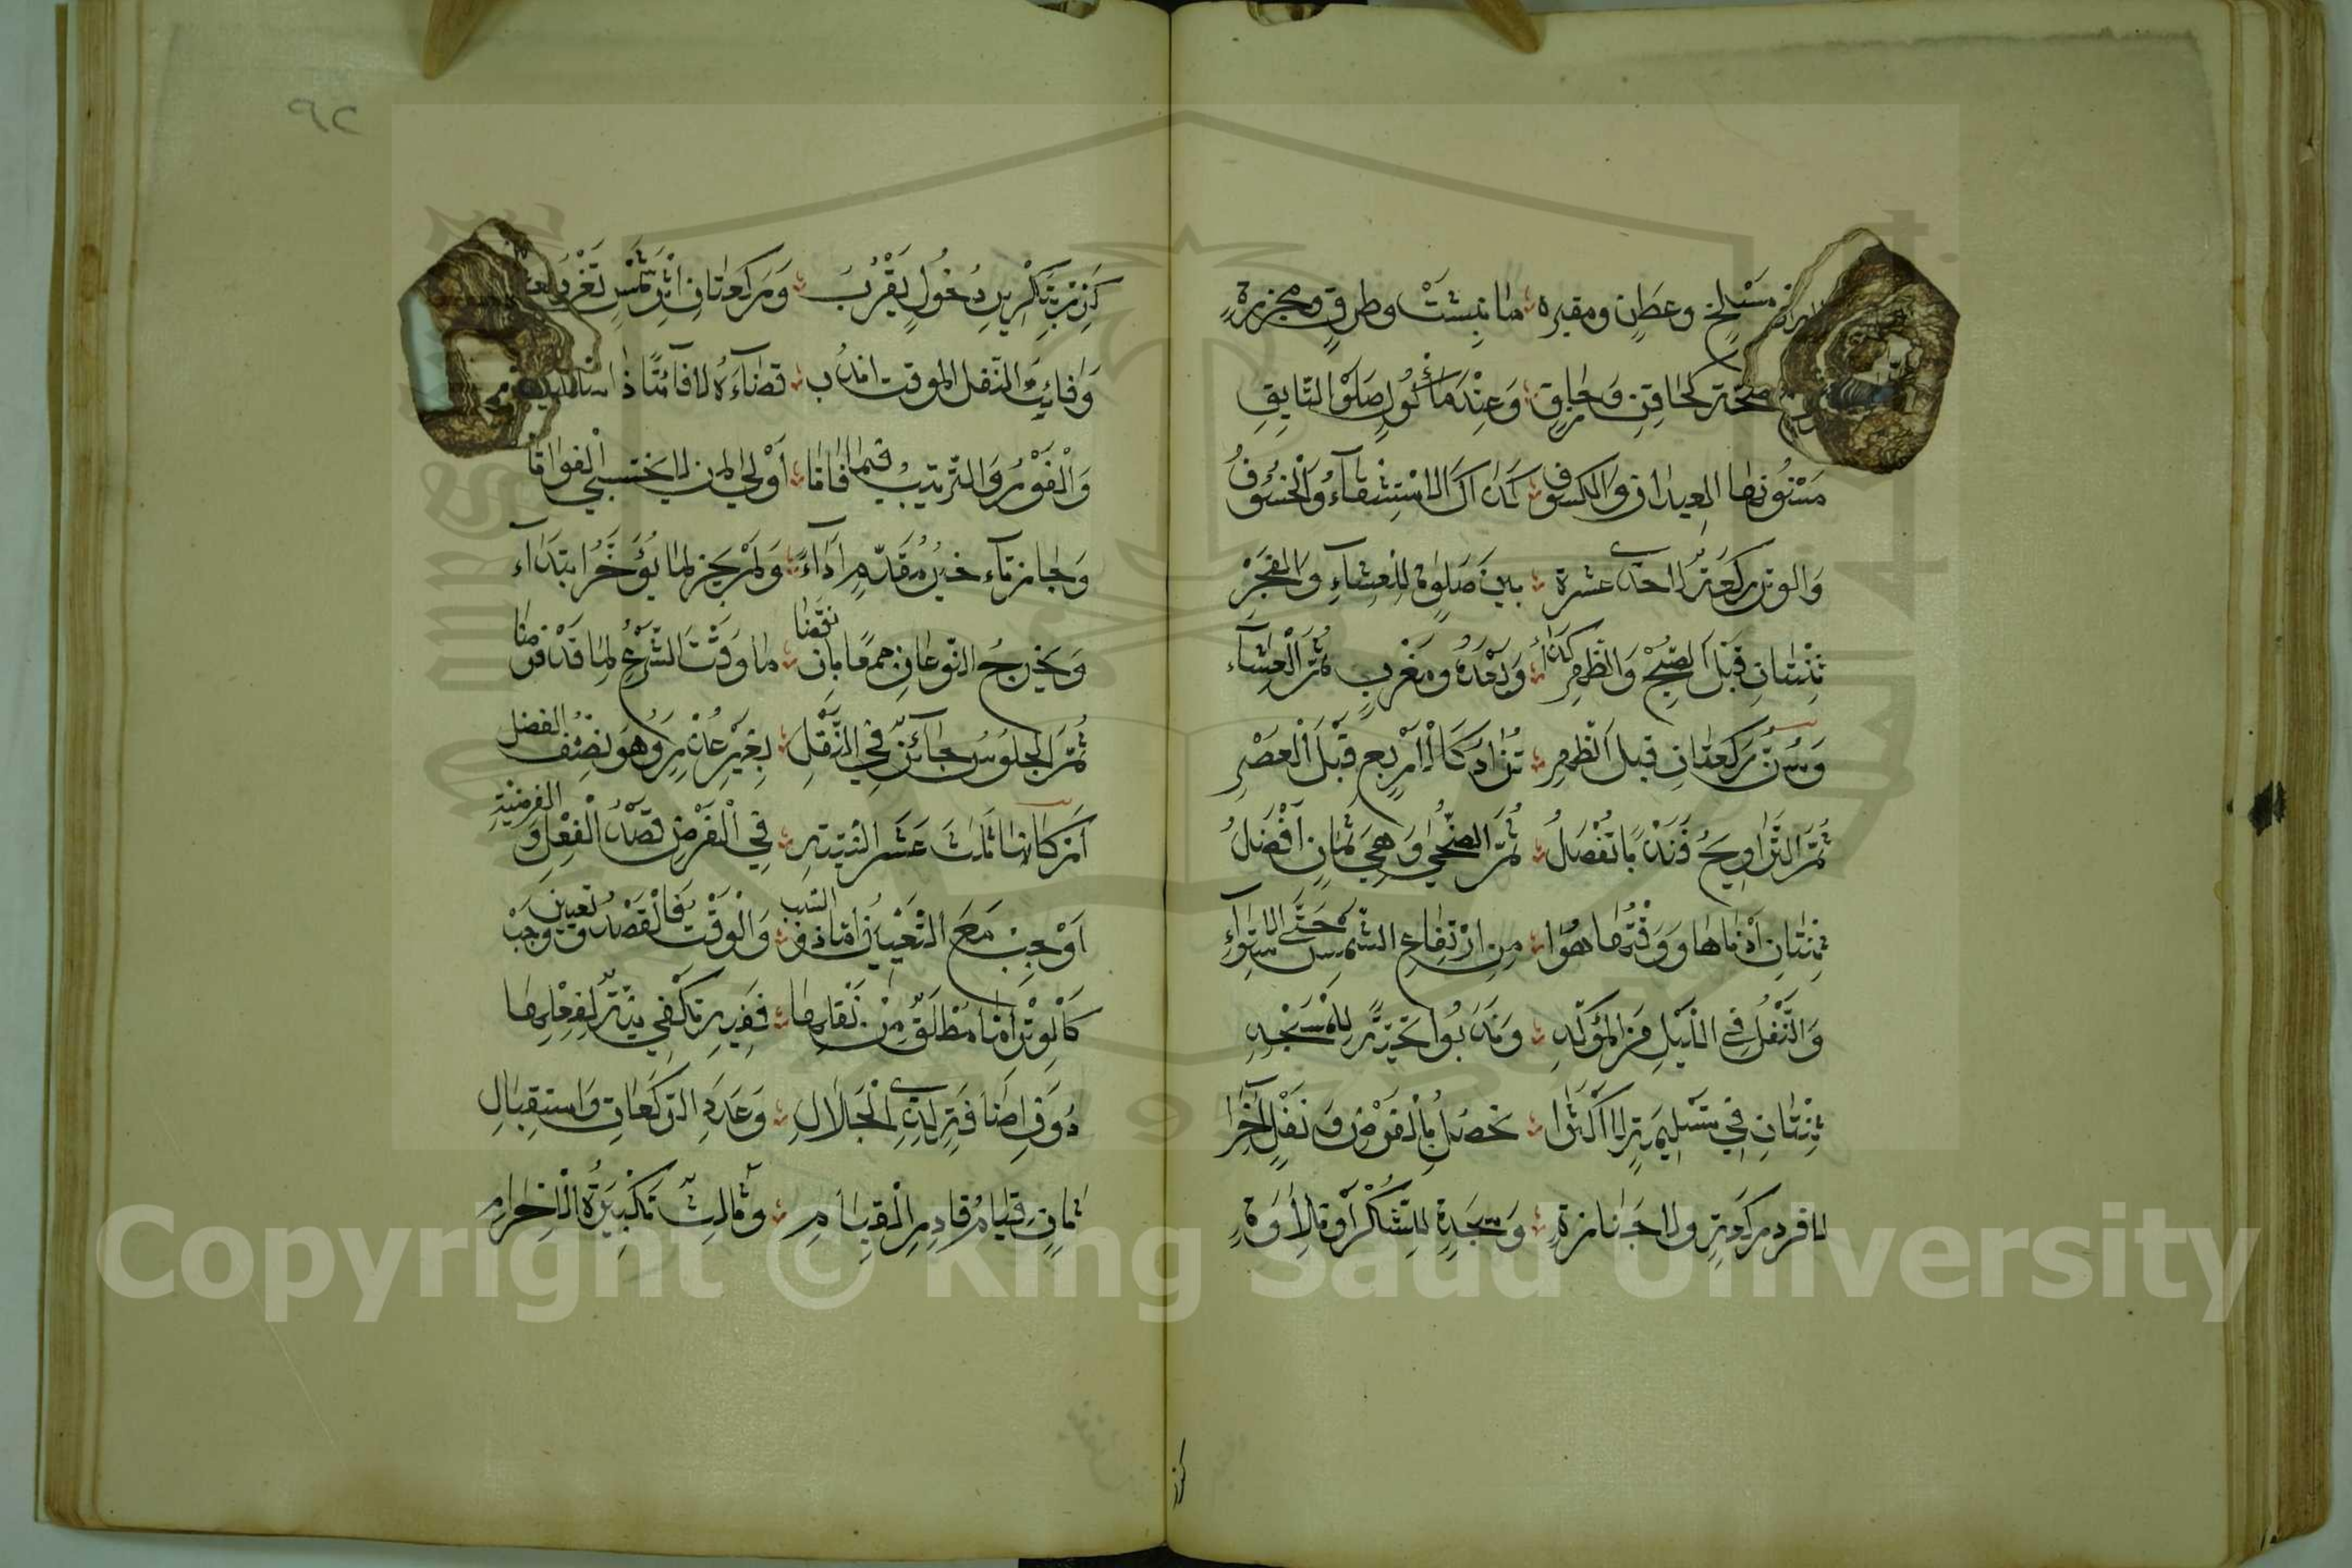 مَسْلَخٍ وعَطَنٍ ومقبره مَا نُبِشَتْ وطرقٍ ومجزرةٍ
مَعْ صِحَّةٍ كحَاقِنٍ وَحَازِقٍ وَعِنْدَ مَأْكُولٍ صَلَوٰ التَّايِقِ
مَسْنُونهَا العِيدَانِ وَالكسوف كَذَاكَ الِاسْتِسْقَاءُ وَالْخُسُوفُ
وَالوتر ركعَة لاحدى عشرة بينَ صَلٰوة لِلعِشَاءِ وَالفَجْرِ
ثِنْتَانِ قَبْلَ الصُّبْحِ وَالظُّهرِ كَذَا وَبَعْدَهُ ومَغْربٍ ثُمَّ الْعِشَاء
وَسُنَّ رَكعَتَانِ قبل الظُّهرِ تُزَادُ كَالْأَرْبَع قَبْلَ الْعَصْرِ
ثُمَّ التَّرَاوِيحُ فَنَدْبًا تُفْصَلُ ثُمَّ الضُّحٰى وَهِيَ ثَمَانٍ أَفْضَلُ
ثِنْتَانِ أَدْنَاهَا وَوَقْتُهَا هُوَا مِنِ ارْتِفَاعِ الشمسِ حَتَّى الِاسْتِوَاءِ
وَالنَّفْلُ فِي اللَّيْلِ مِنَ المُؤَكَّدِ وَنَدَبُوا تَحِيَّةً لِلْمَسْجِدِ
ثِنْتَانِ فِي تَسْلِيمَةٍ لَا أَكْثَرَا تَحْصُلُ بِالْفَرْضِ وَنَفْلٍ آخَرَا
لا فرد ركعةٍ ولا جَنَازةٍ وَسَجْدَةٍ لِلشُّكْرِ أو تِلَاوَةِ
كرر
٩٢
كَرِّرْ بِتَكْرِيرِ دُخُولٍ يَقْرُبُ وَرَكعَتَانِ اثْرَ شَمْسٍ تَغْرُبُ
وَفَائِتَ النَّفل المُوقت انْدُب قَضَاءَهُ لا فَائِتًا ذا
وَالْفَوْرُ وَالتَّرْتِيبُ فيمَا فَاتَا أَوْلَى لمن لم يَخْتَشِ الْفَوَاتَا
وَجَازَ تَأخيرُ مُقَدَّمٍ أَدَاءً وَلَمْ يَجُزْ لِمَا يُؤَخَّرُ ابتِدَاءَ
وَيَخْرُجُ النَّوعَانِ جمعًا بِانْقَضَا مَا وَقَّتَ الشَّرْعُ لِمَا قَدْ فَرَضَا
ثُمَّ الجُلُوسُ جَائِزٌ فِي النَّفْلِ بِغَيْرِ عُذْرٍ وَهُوَ نِصْفُ الفضل
أَرْكَانُهَا ثَلَاثَ عَشَر النِّيَّةِ فِي الْفَرْضِ قَصْدُ الْفِعْلِ وَالفرضِيّة
أَوْجِبْ مَعَ التَّعْيِينِ أَمَّا ذو السَّبب وَالْوَقْتِ فَالْقَصْدُ وتَعيين وَجَب
كَالْوِتْرِ أَمَّا مُطْلَقٌ مِنْ نَفْلِهَا فَفِيهِ تَكْفِي نِيَّةٌ لِفِعْلِهَا
دُونَ اضَافَةٍ لِذِي الْجَلَالِ وَعَدَدِ الرَّكَعَاتِ وَاسْتِقْبَالِ
ثَانٍ قِيَامُ قَادِرِ الْقِيَامِ وَثَالِثٌ تَكْبِيرَةُ الْاحْرَامِ
Copyright © King Saud University